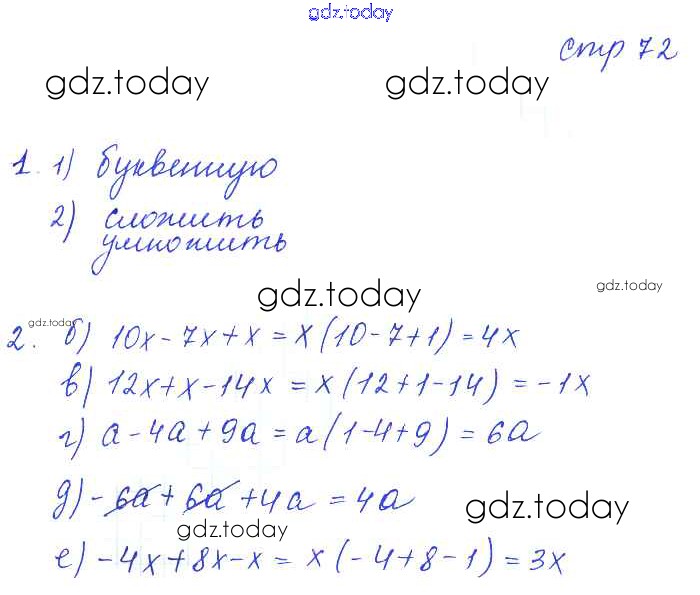 gdz.today
стр 72
gdz.today gdz.today
1. 1) буквенную
2) сложить
умножить
gdz.today gdz.today
gdz.today
2. б) 10x - 7x + x = x (10 - 7 + 1) = 4x
в) 12x + x - 14x = x (12 + 1 - 14) = -1x
г) a - 4a + 9a = a (1 - 4 + 9) = 6a
д) - 6a + 6a + 4a = 4a
gdz.today gdz.today
е) - 4x + 8x - x = x (- 4 + 8 - 1) = 3x